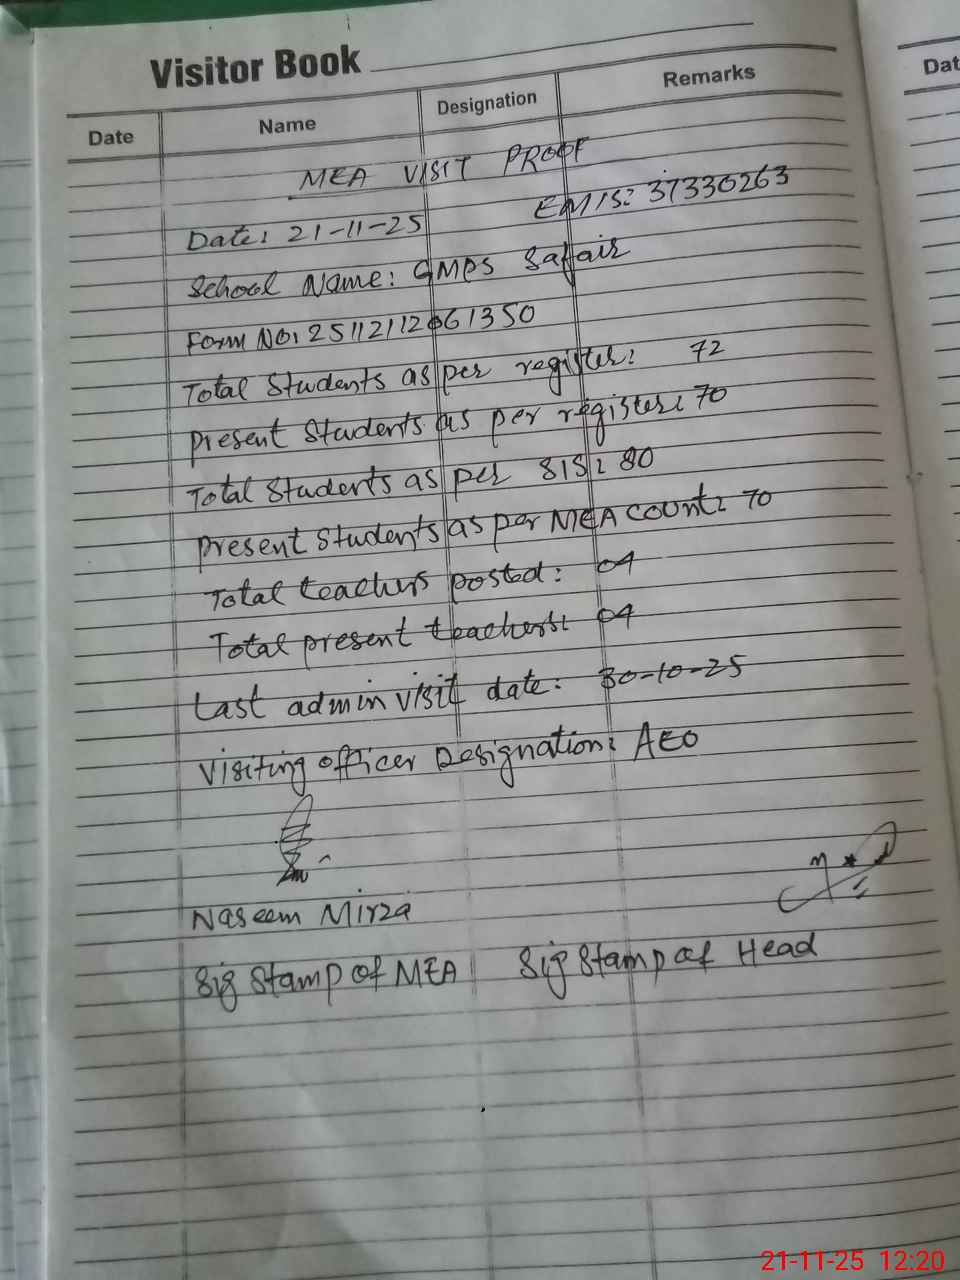 Visitor Book
Date Name Designation Remarks
Dat
MEA VISIT PROOF
Date: 21-11-25 EMIS: 37330263
School Name: GMPS Safair
Form No: 25112112061350
Total Students as per register: 72
Present Students as per register: 70
Total Students as per SIS: 80
Present Students as per MEA count: 70
Total teachers posted: 04
Total present teachers: 04
Last admin visit date: 30-10-25
Visiting officer Designation: AEO
Naseem Mirza
Sig Stamp of MEA Sig Stamp of Head
21-11-25 12:20